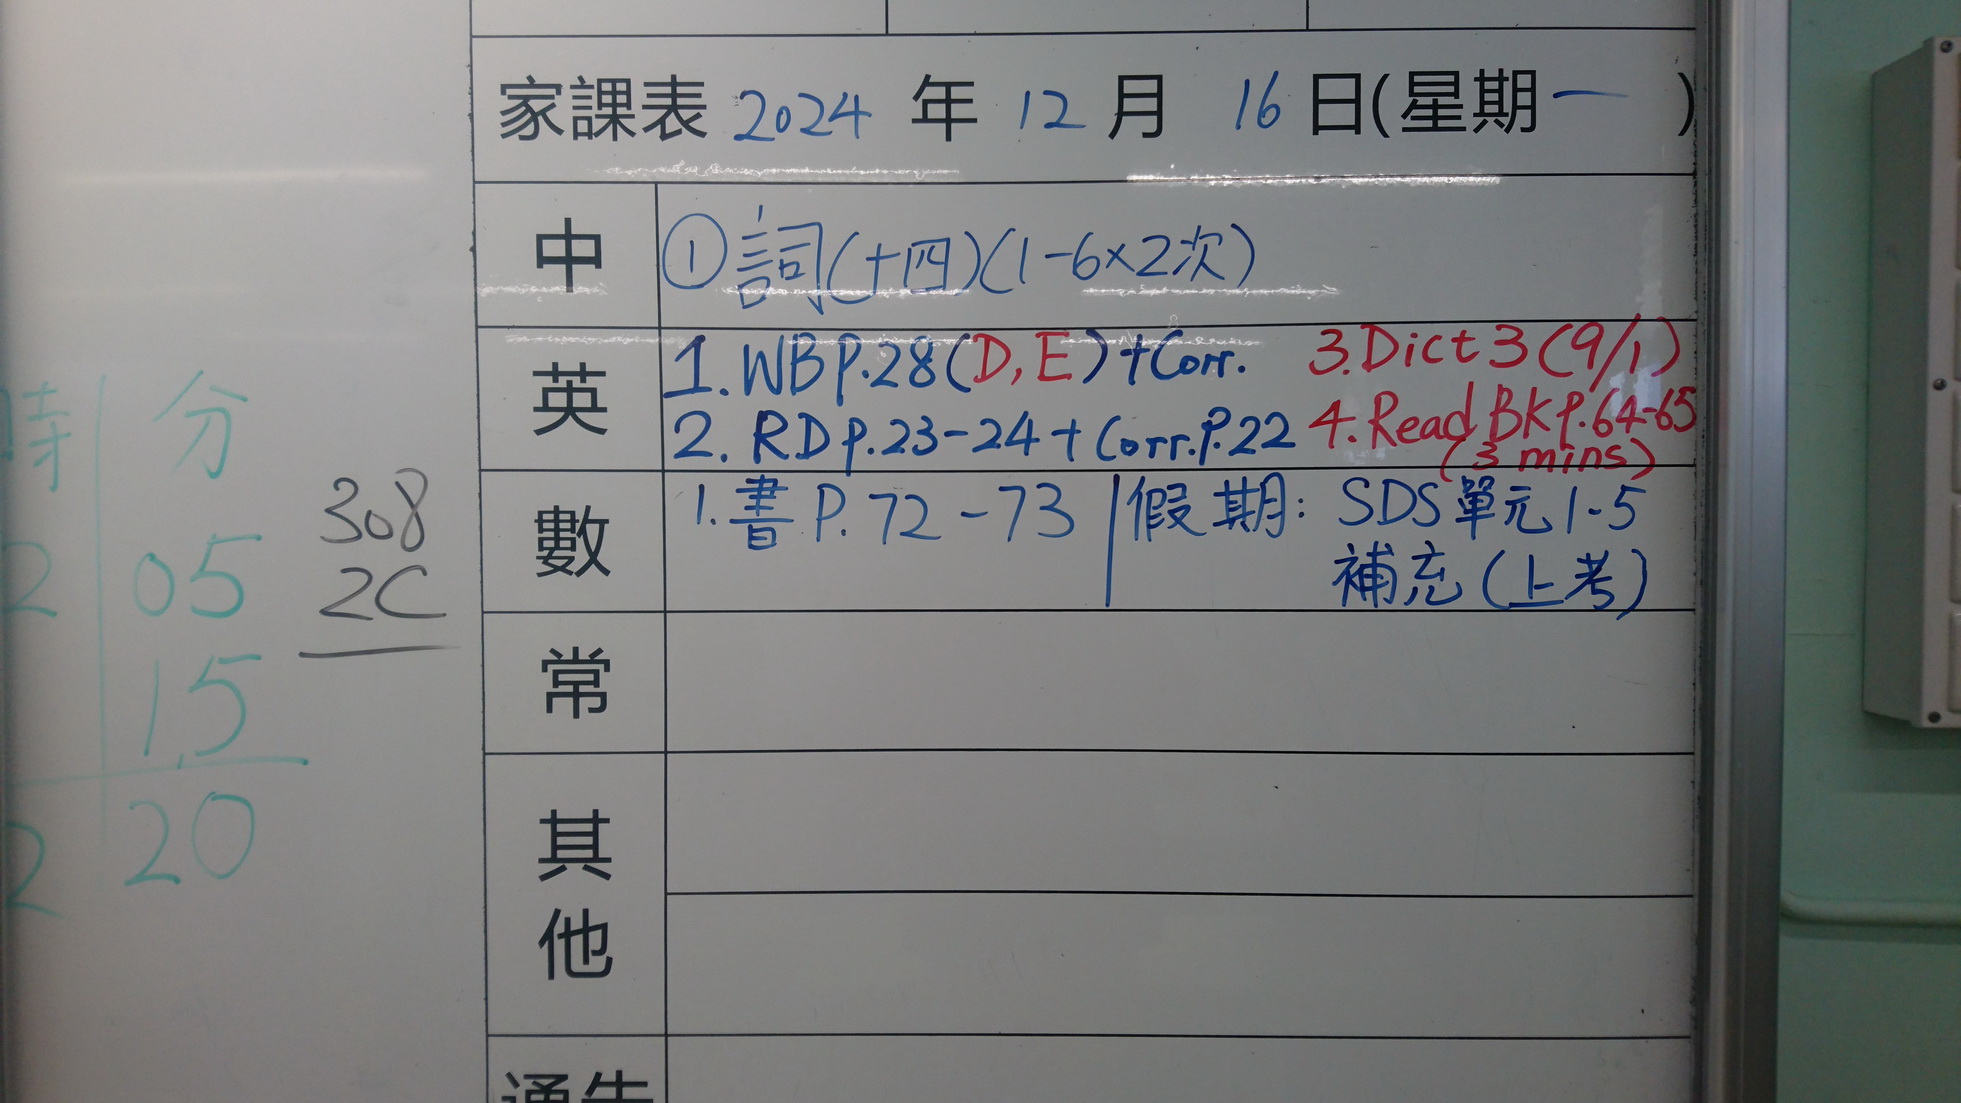 家課表 2024 年 12 月 16 日(星期一)
中 ①詞(十四)(1-6×2次)
英 1. WB P.28(D, E)+Corr. 3. Dict 3 (9/1)
2. RD P.23-24 + Corr. P.22 4. Read BK P.64-65
(3 mins)
數 1. 書 P. 72-73 | 假期: SDS 單元 1-5
補充 (上考)
常
其他
通告
時 分
2 05
15
2 20
308
2C